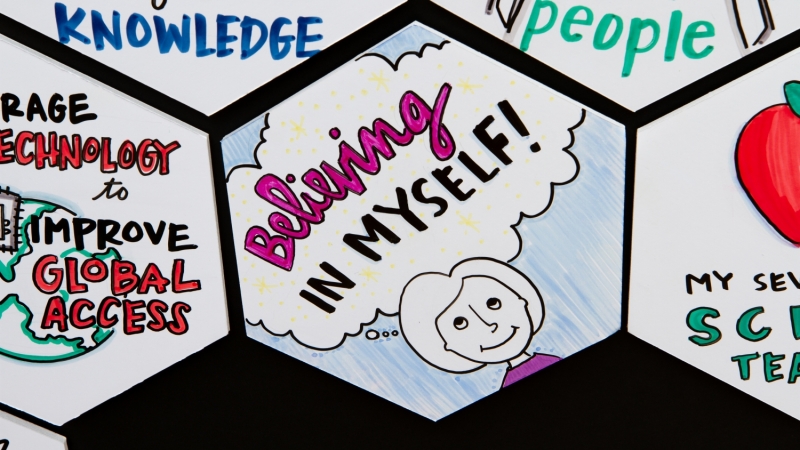 KNOWLEDGE
people
TECHNOLOGY
to
IMPROVE
GLOBAL
ACCESS
Believing
IN MYSELF!
MY